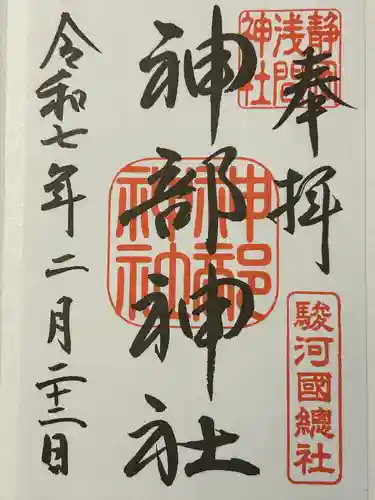 奉拝
静岡浅間神社
駿河國總社
神部神社
神部神社
令和七年二月二十三日